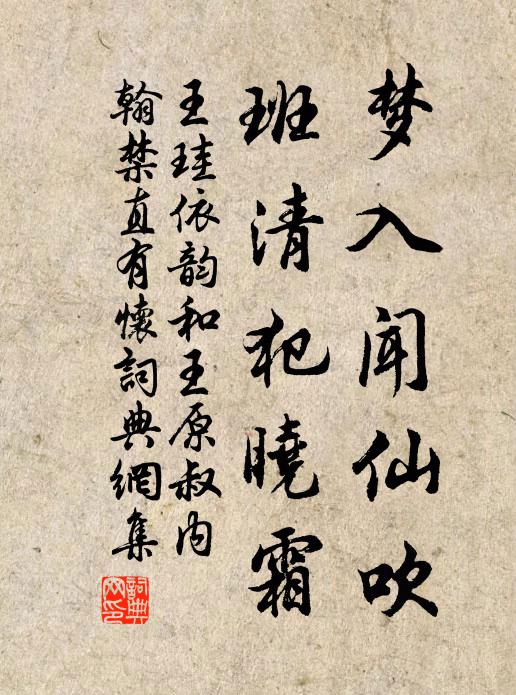 梦入闻仙吹
班清犯曉霜
王珪依韵和王原叔内
翰禁直有懷詞典網集